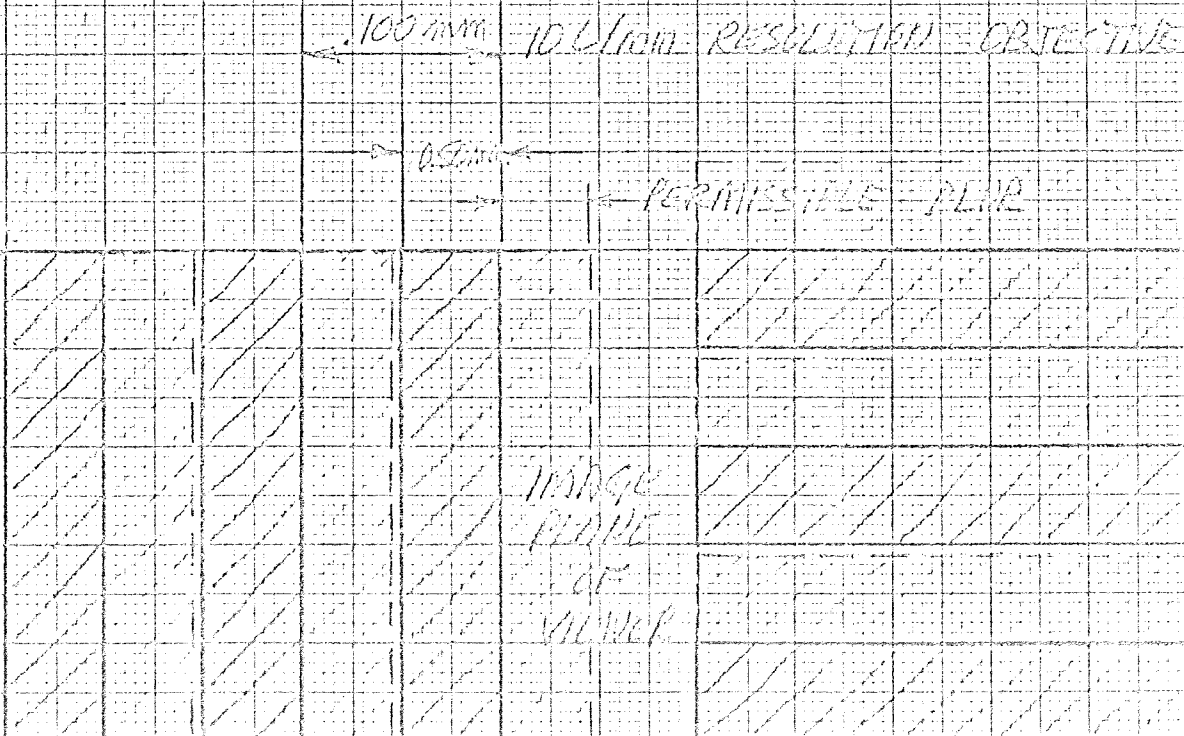 .100 mm 10 L/mm RESOLUTION OBJECTIVE
PERMISSIBLE BLUR
IMAGE
PLANE
OF
VIEWER